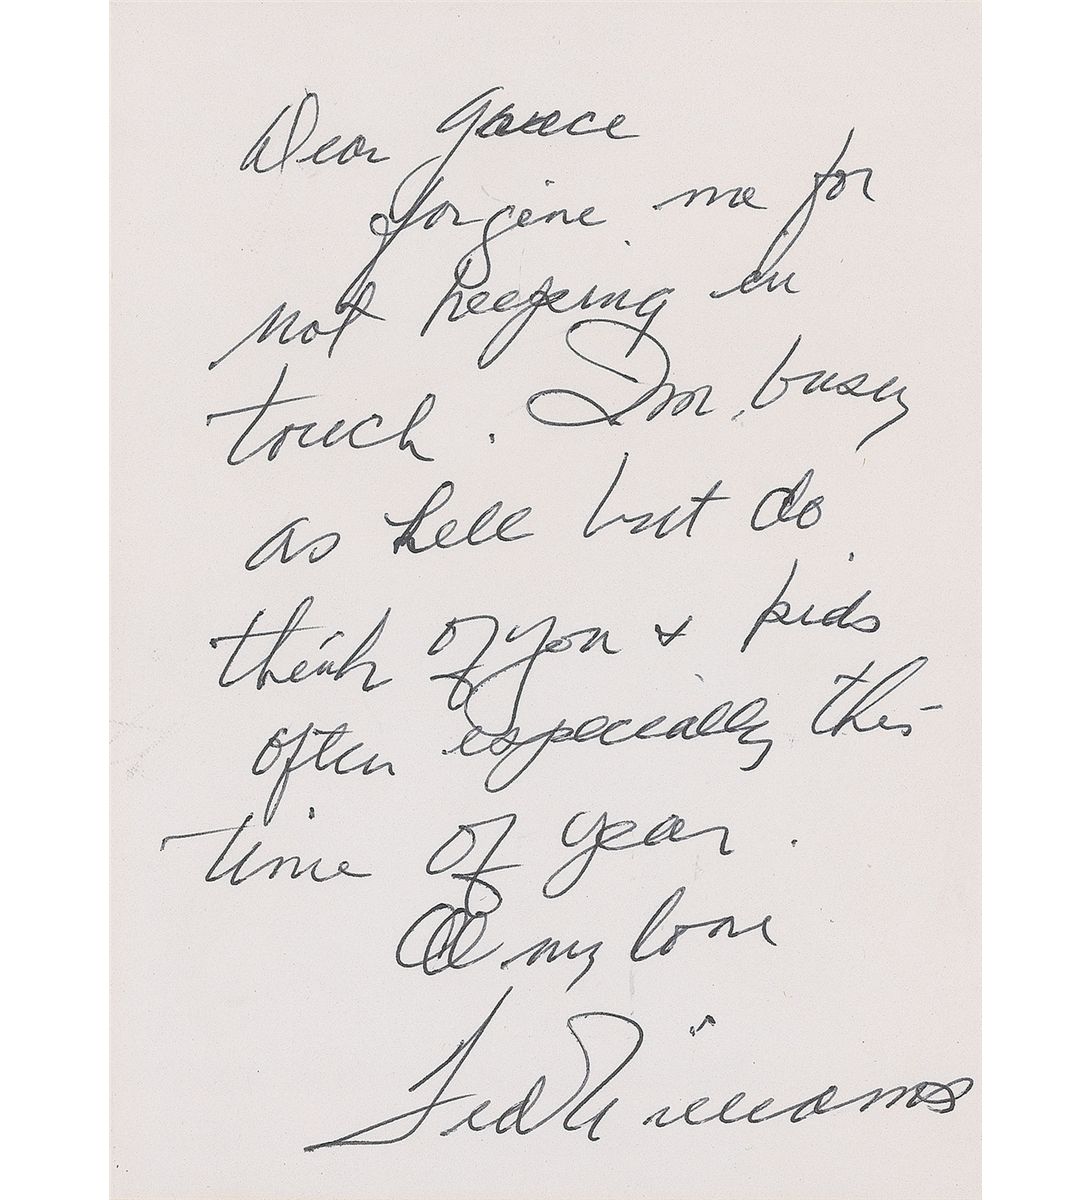 Dear Grace
forgive me for
not keeping in
touch. Im busy
as hell but do
think of you & kids
often especially this
time of year.
All my love
Ted Williams